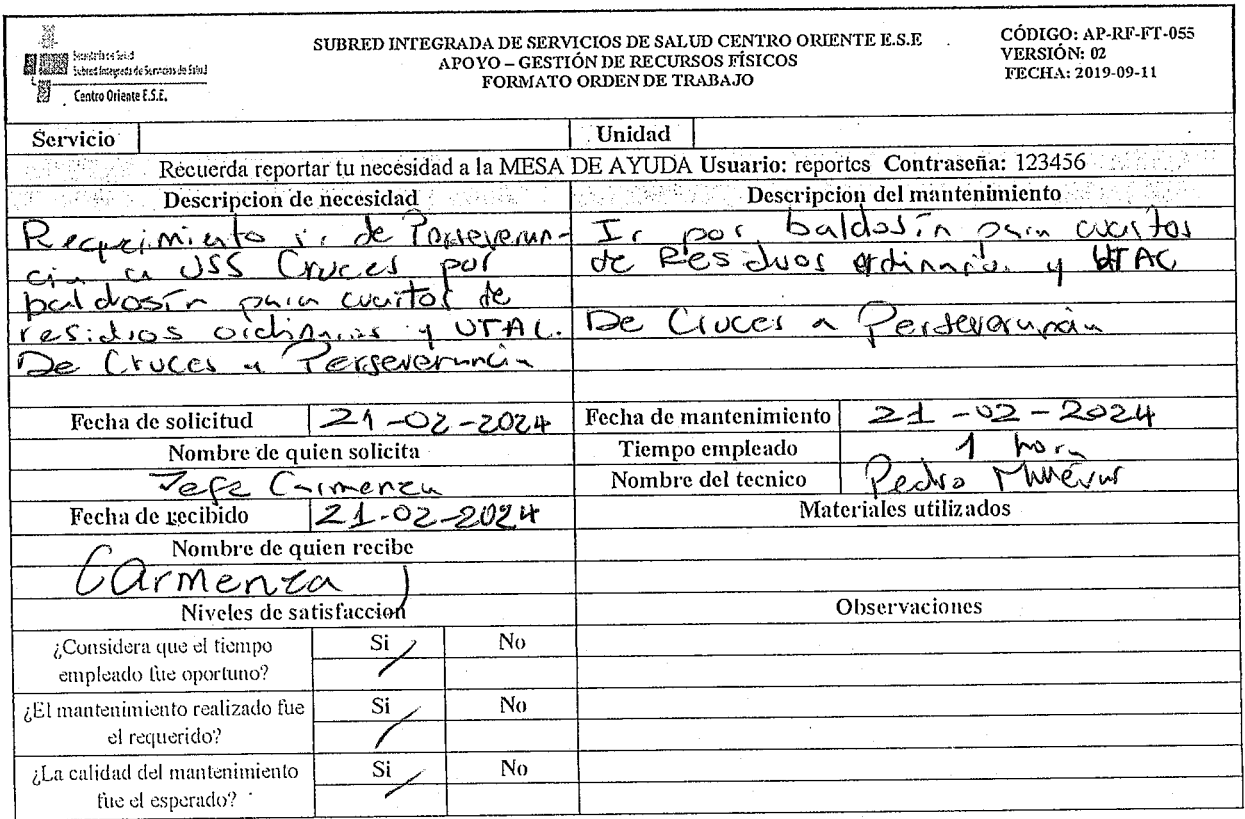 Secretaría de Salud
Subred Integrada de Servicios de Salud
Centro Oriente E.S.E.
SUBRED INTEGRADA DE SERVICIOS DE SALUD CENTRO ORIENTE E.S.E
APOYO – GESTIÓN DE RECURSOS FÍSICOS
FORMATO ORDEN DE TRABAJO
CÓDIGO: AP-RF-FT-055
VERSIÓN: 02
FECHA: 2019-09-11
Servicio
Unidad
Recuerda reportar tu necesidad a la MESA DE AYUDA Usuario: reportes Contraseña: 123456
Descripcion de necesidad
Requerimiento de Perseveran-
cia a USS Cruces por
baldosín para cuartos de
residios ordinarios y UTAC.
De Cruces a Perseverancia
Descripcion del mantenimiento
Ir por baldosín para cuartos
de Residuos ordinario. y UTAC
De Cruces a Perseverancia
Fecha de solicitud 21-02-2024
Fecha de mantenimiento 21-02-2024
Nombre de quien solicita
Jefe Carmenza
Tiempo empleado 1 hora
Nombre del tecnico Pedro
Fecha de recibido 21-02-2024
Materiales utilizados
Nombre de quien recibe
Carmenza
Niveles de satisfaccion
Observaciones
¿Considera que el tiempo
empleado fue oportuno?
Si No
¿El mantenimiento realizado fue
el requerido?
Si No
¿La calidad del mantenimiento
fue el esperado?
Si No